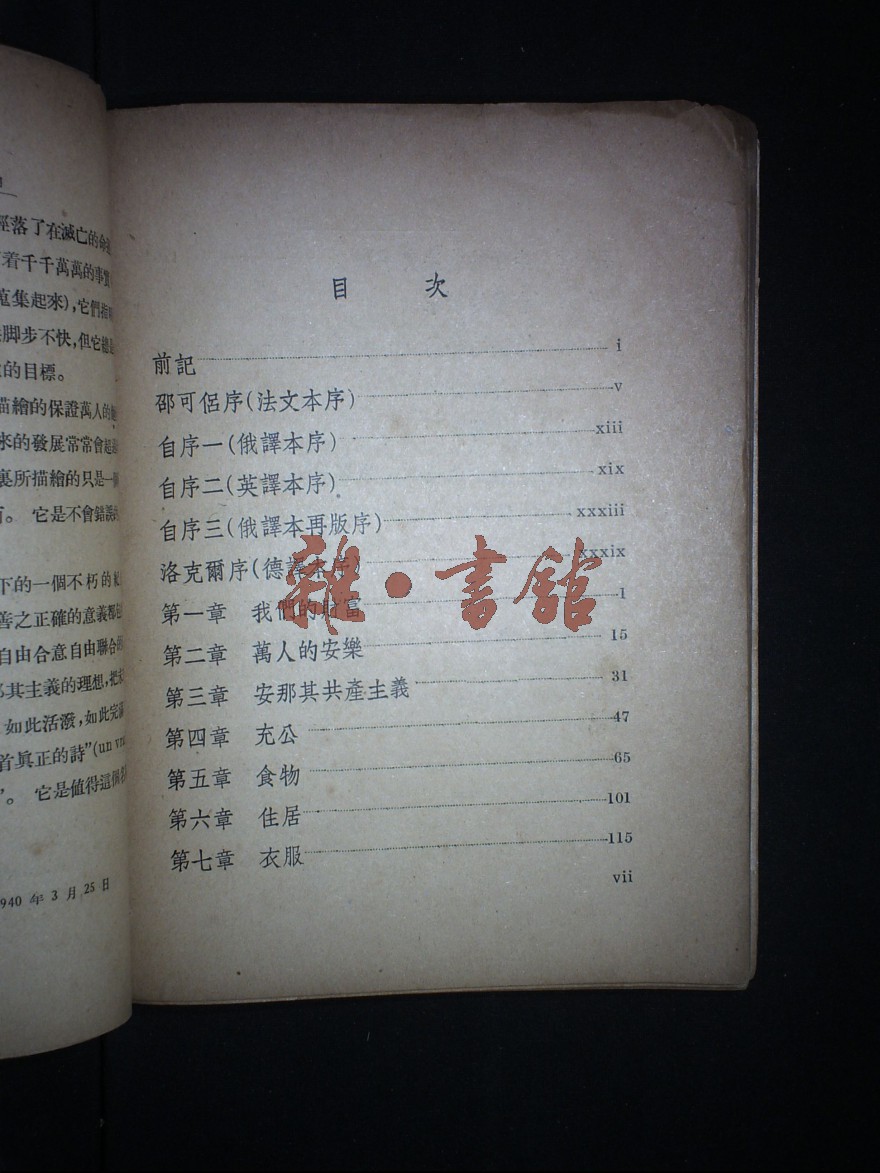 徑落了在滅亡的命
着千千萬萬的事實
蒐集起來),它們指明
脚步不快,但它總是
的目標。
描繪的保證萬人的
來的發展常常會起
裏所描繪的只是一個
它是不會錯誤
下的一個不朽的
善之正確的意義都
自由合意自由聯合的
那其主義的理想,把
如此活潑,如此完
首眞正的詩”(un vra
”。 它是值得這個
940 年 3 月 25 日
目 次
前記 i
邵可侶序(法文本序) v
自序一(俄譯本序) xiii
自序二(英譯本序) xix
自序三(俄譯本再版序) xxxiii
洛克爾序(德譯本序) xxxix
第一章 我們的財富 1
第二章 萬人的安樂 15
第三章 安那其共產主義 31
第四章 充公 47
第五章 食物 65
第六章 住居 101
第七章 衣服 115
vii
雜·書館